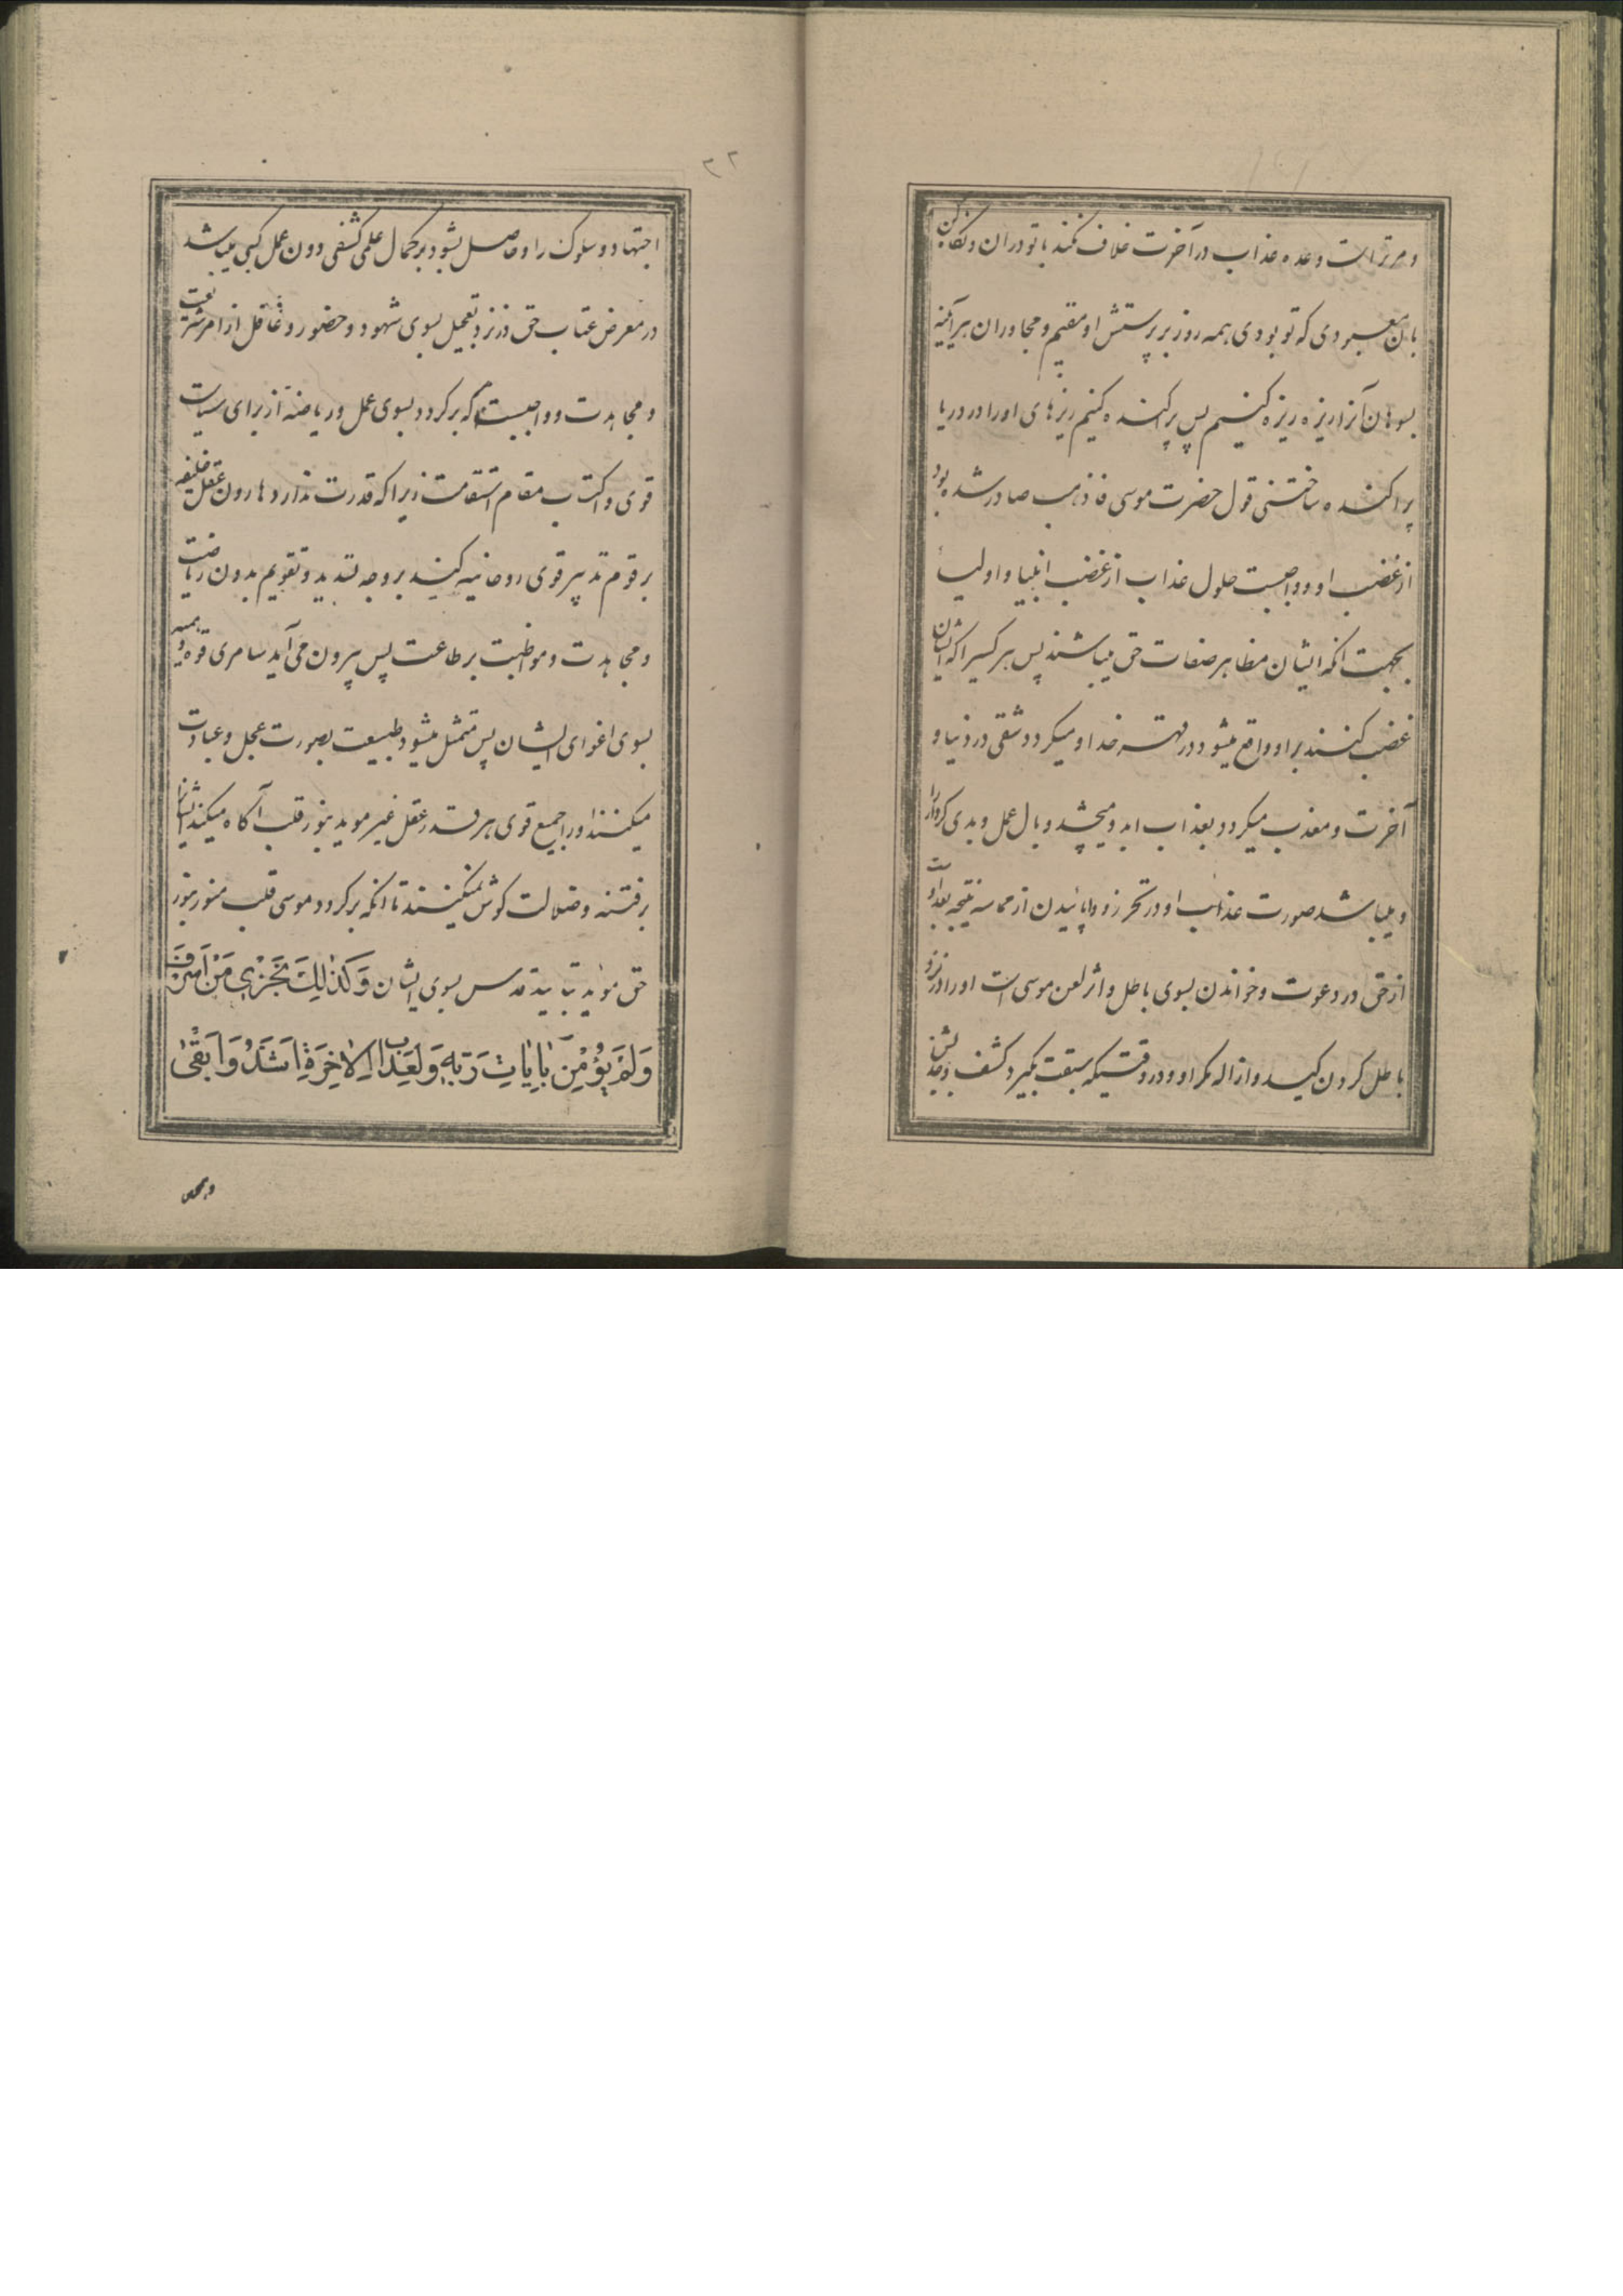 و مر تراست وعده عذاب در آخرت خلاف نکند با تو در ان و نگاه کن
بان معبودی که تو بودی همه روز بر پرستش او مقیم و مجاور ان هرآینه
بسوهان آنرا ریزه ریزه کنیم پس پراکنده کنیم ریزهای اورا در دریا
پراکنده ساختنی قول حضرت موسی فاذهب صادر شده بود
از غضب او و واجبست حلول عذاب از غضب انبیا و اولیا
بجهت انکه ایشان مظاهر صفات حق میباشند پس هر کسیرا که ایشان
غضب کنند بر او واقع میشود در قهر خدا و میکردد شقی در دنیا و
آخرت و معذب میکردد بعذاب ابد و میچشد وبال عمل و بدی کردار را
و میباشد صورت عذاب او در تحرز و واپائیدن از مماسه نتیجه بعد اوست
از حق در دعوت و خواندن بسوی باطل و اثر لعن موسی است او را در نزد
باطل کردن کید و ازاله مکر او و در وقتیکه سبقت بکیرد کشف و جذبش
۲۲
اجتهاد و سلوک را و حاصل بشود بر کمال علمی کشفی دون عمل کسبی میباشد
در معرض عتاب حق در نزد تعجیل بسوی شهود و حضور و غافل از امر شریعت
و مجاهدت و واجبست که برکردد بسوی عمل و ریاضة از برای سیاست
قوی و اکتساب مقام استقامت زیرا که قدرت ندارد هارون عقل خلیفه
بر قوم تدبیر قوی روحانیه کند بر وجه تسدید و تقویم بدون ریاضت
و مجاهدت و مواظبت بر طاعت پس بیرون می‌آید سامری قوه وهمیه
بسوی اغوای ایشان پس متمثل میشود طبیعت بصورت عجل و عبادت
میکنند اورا جمیع قوی هر قدر عقل غیر موید بنور قلب آکاه میکند ایشانرا
بر فتنه و ضلالت کوش نمیکنند تا انکه برکردد موسی قلب منور بنور
حق موید بتایید قدس بسوی ایشان وَکَذٰلِكَ نَجْزِی مَنْ اَسْرَفَ
وَلَمْ یُؤْمِنْ بِاٰیٰاتِ رَبِّهِ وَلَعَذٰابُ الْاٰخِرَةِ اَشَدُّ وَاَبْقٰی